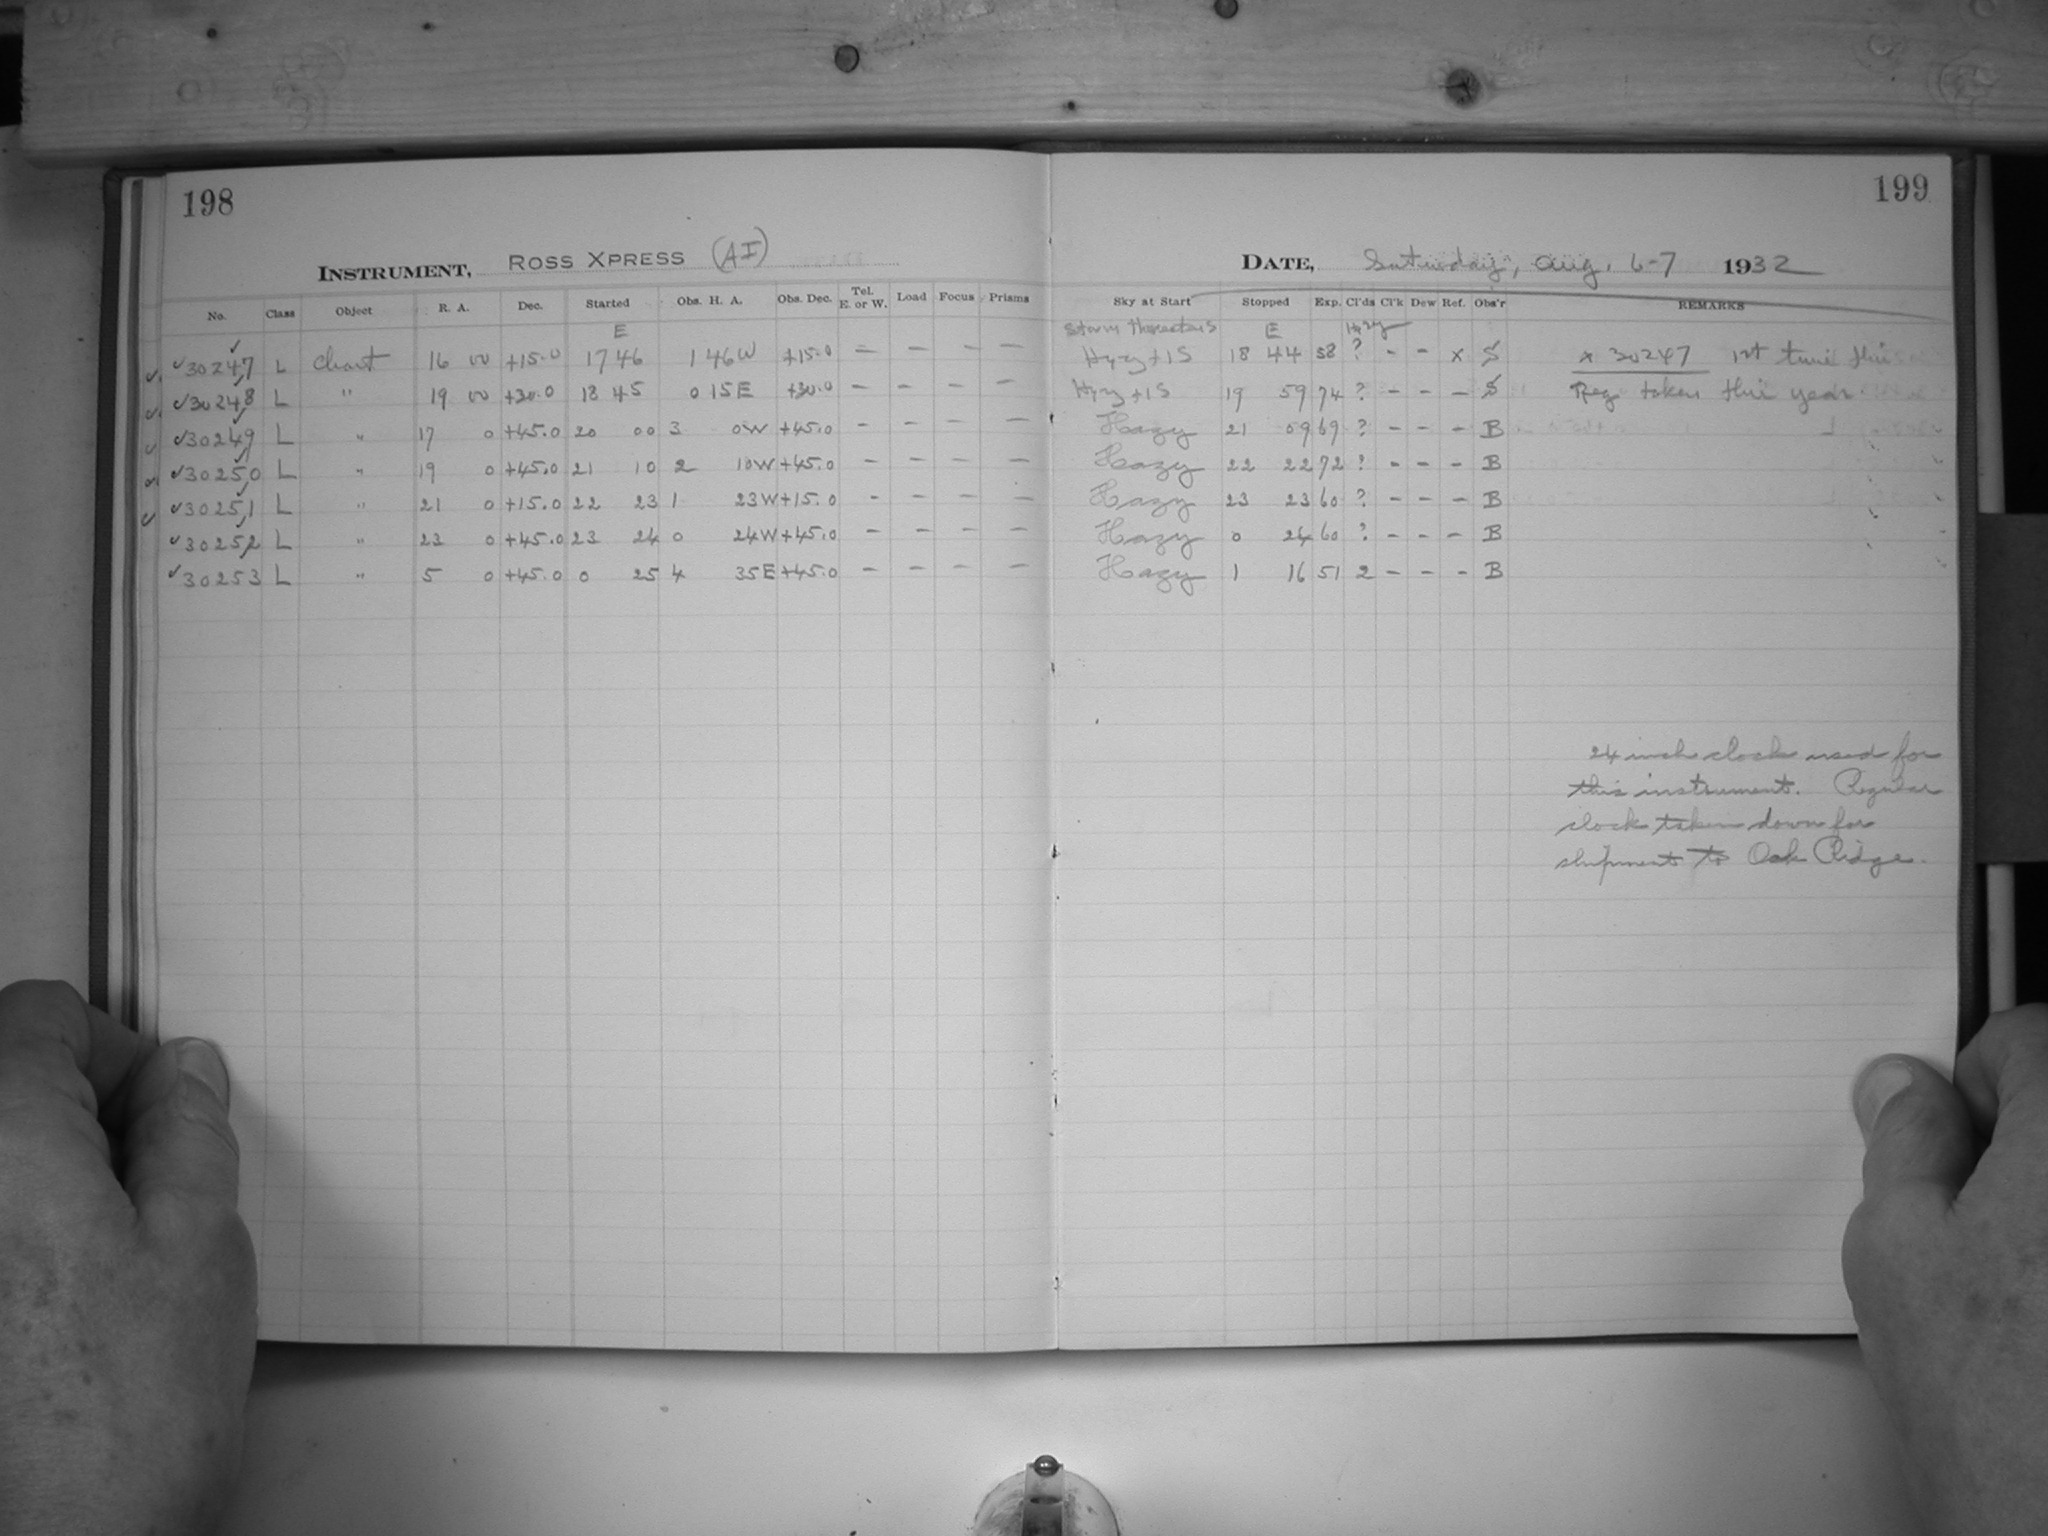 198
INSTRUMENT, ROSS XPRESS (AI)
No. Class Object R. A. Dec. Started Obs. H. A. Obs. Dec. Tel. E. or W. Load Focus Prisms
E
✓30247 L Chart 16 00 +15.0 17 46 1 46W +15.0 — — — —
✓30248 L " 19 00 +30.0 18 45 0 15E +30.0 — — — —
✓30249 L " 17 0 +45.0 20 00 3 0W +45.0 — — — —
✓30250 L " 19 0 +45.0 21 10 2 10W +45.0 — — — —
✓30251 L " 21 0 +15.0 22 23 1 23W +15.0 — — — —
✓30252 L " 23 0 +45.0 23 24 0 24W +45.0 — — — —
✓30253 L " 5 0 +45.0 0 25 4 35E +45.0 — — — —
199
DATE, Saturday, Aug. 6-7 1932
Sky at Start Stopped Exp. Cl'ds Cl'k Dew Ref. Obs'r REMARKS
Storm Threatens E Hzy
Hyzy + 1S 18 44 58 ? - - x S x 30247 1st time this
Hyzy + 1S 19 59 74 ? - - - S Reg taken this year
Hazy 21 09 69 ? - - - B
Hazy 22 22 72 ? - - - B
Hazy 23 23 60 ? - - - B
Hazy 0 24 60 ? - - - B
Hazy 1 16 51 2 - - - B
24 inch clock used for
this instrument. Regular
clock taken down for
shipment to Oak Ridge.